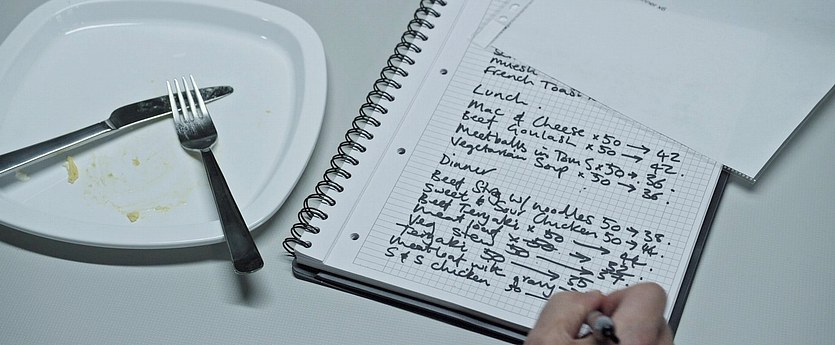 Muesli
French Toast
Lunch.
Mac & Cheese x 50 → 42
Beef Goulash x 50 → 42.
Meatballs in Tom S x 50 → 36.
Vegetarian Soup x 50 → 36.
Dinner
Beef Stew w/ noodles 50 → 38.
Sweet & Sour Chicken 50 → 44.
Beef Teryaki x 50 →
meatloaf x 50 →
Veg Stew 50 →
Teryaki 50 → 50
Meatloaf with gravy
S & S chicken 36